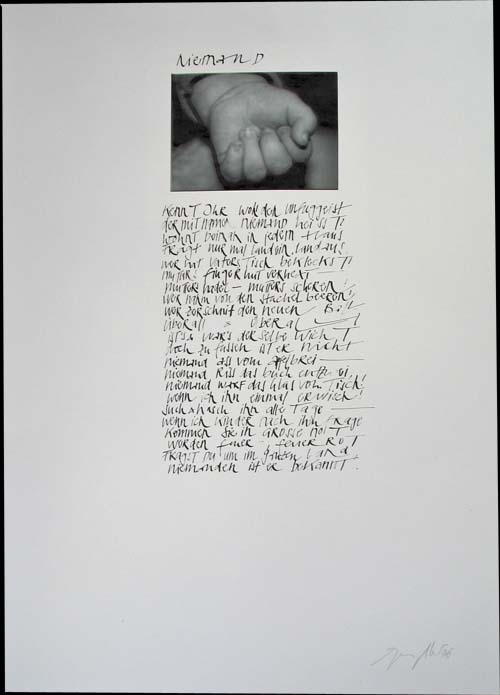 Niemand
Kennt Ihr wohl den Unfuggeist
der mit Namen Niemand heisst
wohnt beinah in jedem Haus
Fragt nur mal landein, landaus
wer hat Vaters Tisch bekleckst
Mutters Fingerhut verhext
Mutters Nadel – Mutters Scheren!
wer nahm von den Stachelbeeren!
wer zerschnitt den neuen Ball
überall überall
ists, war's derselbe Wicht
doch zu fassen ist er nicht
niemand ass vom Apfelbrei
niemand riss das Buch
niemand warf das Glas vom Tisch!
wenn ich ihn einmal erwisch!
Such & hasch ihn alle Tage
wenn ich Kinder nach ihm frage
kommen sie in grosse Not
werden feuer feuer rot
Fragst du um im ganzen Land,
niemanden ist er bekannt.